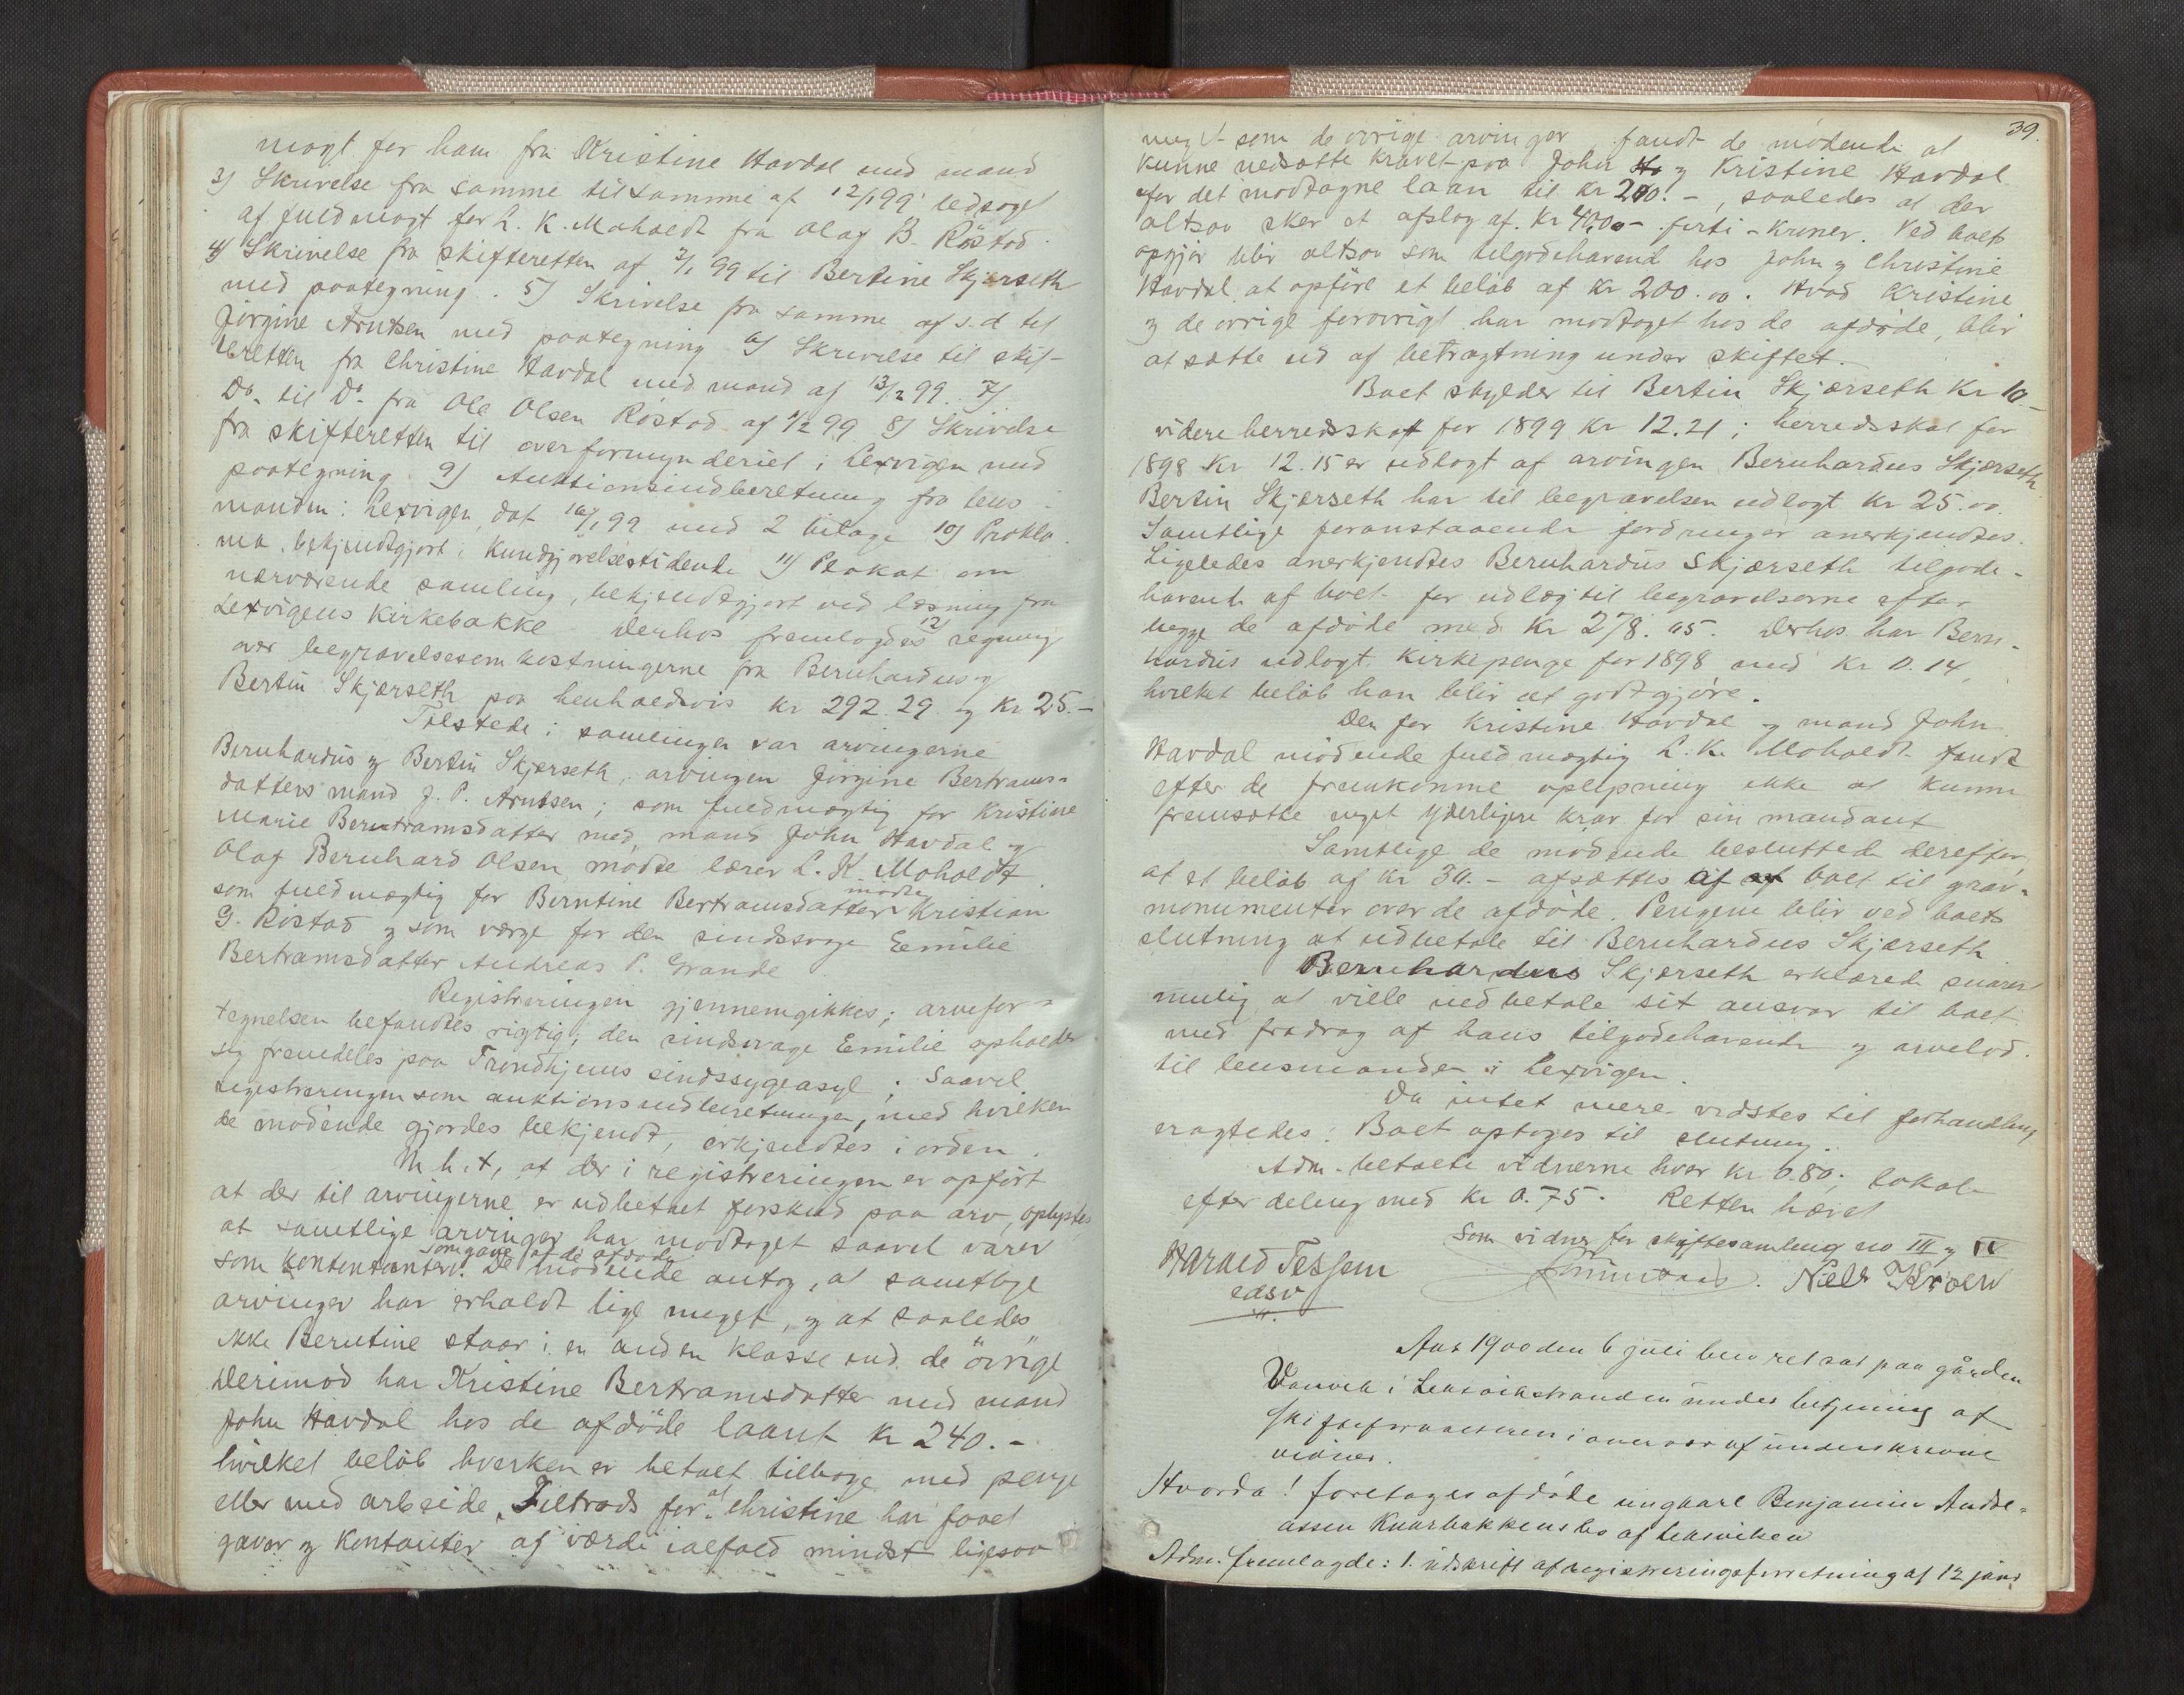 magt for ham fra Kristine Havdal med mand
3) Skrivelse fra samme til samme af 12/1 99 ledsaget
af fuldmagt for L. K. Moholdt fra Olaf B. Röstad.
4) Skrivelse fra skifteretten af 2/1 99 til Bertine Skjærseth
med paategning. 5) Skrivelse fra samme af s. d. til
Jörgine Arntsen med paategning 6) Skrivelse til skif-
teretten fra Christine Havdal med mand af 13/2 99. 7)
Do. til Do. fra Ole Olsen Röstad af 1/2 99 8) Skrivelse
fra skifteretten til overformynderiet i Lexvigen med
paategning 9) Auktionsindberetning fra lens-
manden i Lexvigen, dat 16/1 99 med 2 bilage 10) Prokla-
ma, bekjendtgjort i Kundgjörelsestidende 11) Plakat om
nærværende samling, bekjendtgjort ved læsning fra
Lexvigens Kirkebakke Derhos fremlagdes 12) regning
over begravelsesomkostningerne fra Bernhardus og
Bertin Skjærseth paa henholdsvis kr 292.29 og Kr 25.-
Tilstede i samlingen var arvingerne
Bernhardus og Bertin Skjærseth, arvingen Jörgine Bertrams-
datters mand J. P. Arntsen; som fuldmægtig for Kristine
Marie Berntramsdatter med mand John Havdal og
Olaf Bernhard Olsen mödte lærer L. K. Moholdt
som fuldmægtig for Berntine Bertramsdatter mödte Kristian
G. Röstad og som værge for den sindssvage Emilie
Bertramsdatter Andreas P. Grande.
Registreringen gjennemgikkes; arvefor-
tegnelsen befandtes rigtig; den sindsvage Emilie opholder
sig fremdeles paa Trondhjems sindssygeasyl; Saavel
registreringen som auktionsindberetningen, med hvilken
de mödende gjordes bekjendt, erkjendtes i orden.
M. h. t, at der i registreringen er opfört
at der til arvingerne er udbetalt forskud paa arv, oplystes
at samtlige arvinger har modtaget saavel varer
som kontentanter som gave af de afdöde. De mödende antog, at samtlige
arvinger har erholdt lige meget, og at saaledes
ikke Berntine staar i en anden klasse end de övrige
Derimod har Kristine Bertramsdatter med mand
John Havdal hos de afdöde laant kr 240.-
hvilket belöb hverken er betalt tilbage med penge
eller med arbeide. Tiltrods for at Christine har faaet
gaver og Kontanter af værdi ialfald mindst ligesaa
39.
meget som de övrige arvinger fandt de mödende at
kunne nedsætte kravet paa John og Kristine Havdal
for det modtagne laan til Kr 200.-, saaledes at der
altsaa sker et afslag af Kr 40,00- förti - Kroner. Ved boets
opgjör blir altsaa som tilgodehavende hos John og Christine
Havdal at opföre et belöb af Kr 200.00. Hvad Kristine
og de övrige forövrigt har modtaget hos de afdöde, blir
at sætte ud af betragtning under skiftet.
Boet skylder til Bertin Skjærseth Kr 10.-
videre herredsskat for 1899 Kr 12.21; herredsskat for
1898 Kr 12.15 er udlagt af arvingen Bernhardus Skjærseth
Bertin Skjærseth har til begravelsen udlagt Kr 25.00.
Samtlige foranstaaende fordringer anerkjendtes.
Ligeledes anerkjendtes Bernhardus Skjærseth tilgode-
havende af boet for udlæg til begravelserne efter
begge de afdöde med Kr 278.05. Derhos har Bern-
hardus udlagt Kirkepenge for 1898 med Kr 0.14,
hvilket belöb han blir at godtgjöre.
Den for Kristine Havdal og mand John
Havdal mödende fuldmægtig L. K. Moholdt fandt
efter de fremkomne oplysning ikke at kunne
fremsætte noget yderligere krav for sin mandant
Samtlige de mödende besluttede derefter,
at et belöb af kr 30.- afsættes af boet til grav-
monumenter over de afdöde. Pengene blir ved boets
slutning at udbetale til Bernhardus Skjærseth
Bernhardus Skjærseth erklærede snarest
mulig at ville indbetale sit ansvar til boet
med fradrag af hans tilgodehavende og arvelod
til lensmanden i Lexvigen.
Da intet mere vidstes til forhandling
eragtedes: Boet optages til slutning.
Adm. betalte vidnerne hver kr 0.80; lokale
efter deling med Kr 0.75. Retten hævet
Som vidner for skiftesamling no III og IV
Harald Tessem
edsv
Niels Kroew
Aar 1900 den 6 juli blev ret sat paa gården
Vanvik i Leksvikstranden under betjening af
skifteforvalteren i overvær af underskrevne
vidner.
Hvorda! foretages afdöde ungkarl Benjamin Andre-
assen Knarbakkens bo af Leksviken
Adm. fremlagde: 1. udskrift af registreringsforretning af 12 jan